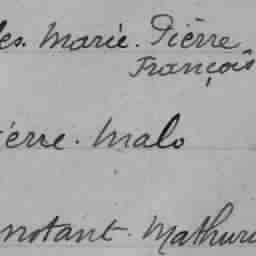 les. Marie. Pièrre
François
ièrre. Malo
nstant. Mathuri